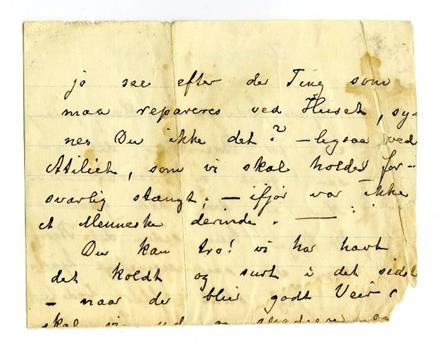 jo see efter de Ting som
maa repareres ved Huset, sy-
nes Du ikke det? – ligsaa ved
Stiliet, som vi skal holde for-
svarlig stængt; – ifjor var ikke
et Menneske derinde. –
Du kan tro! vi har havt
det koldt og surt i det sidste
– naar de blir godt Veir
skal vi ud